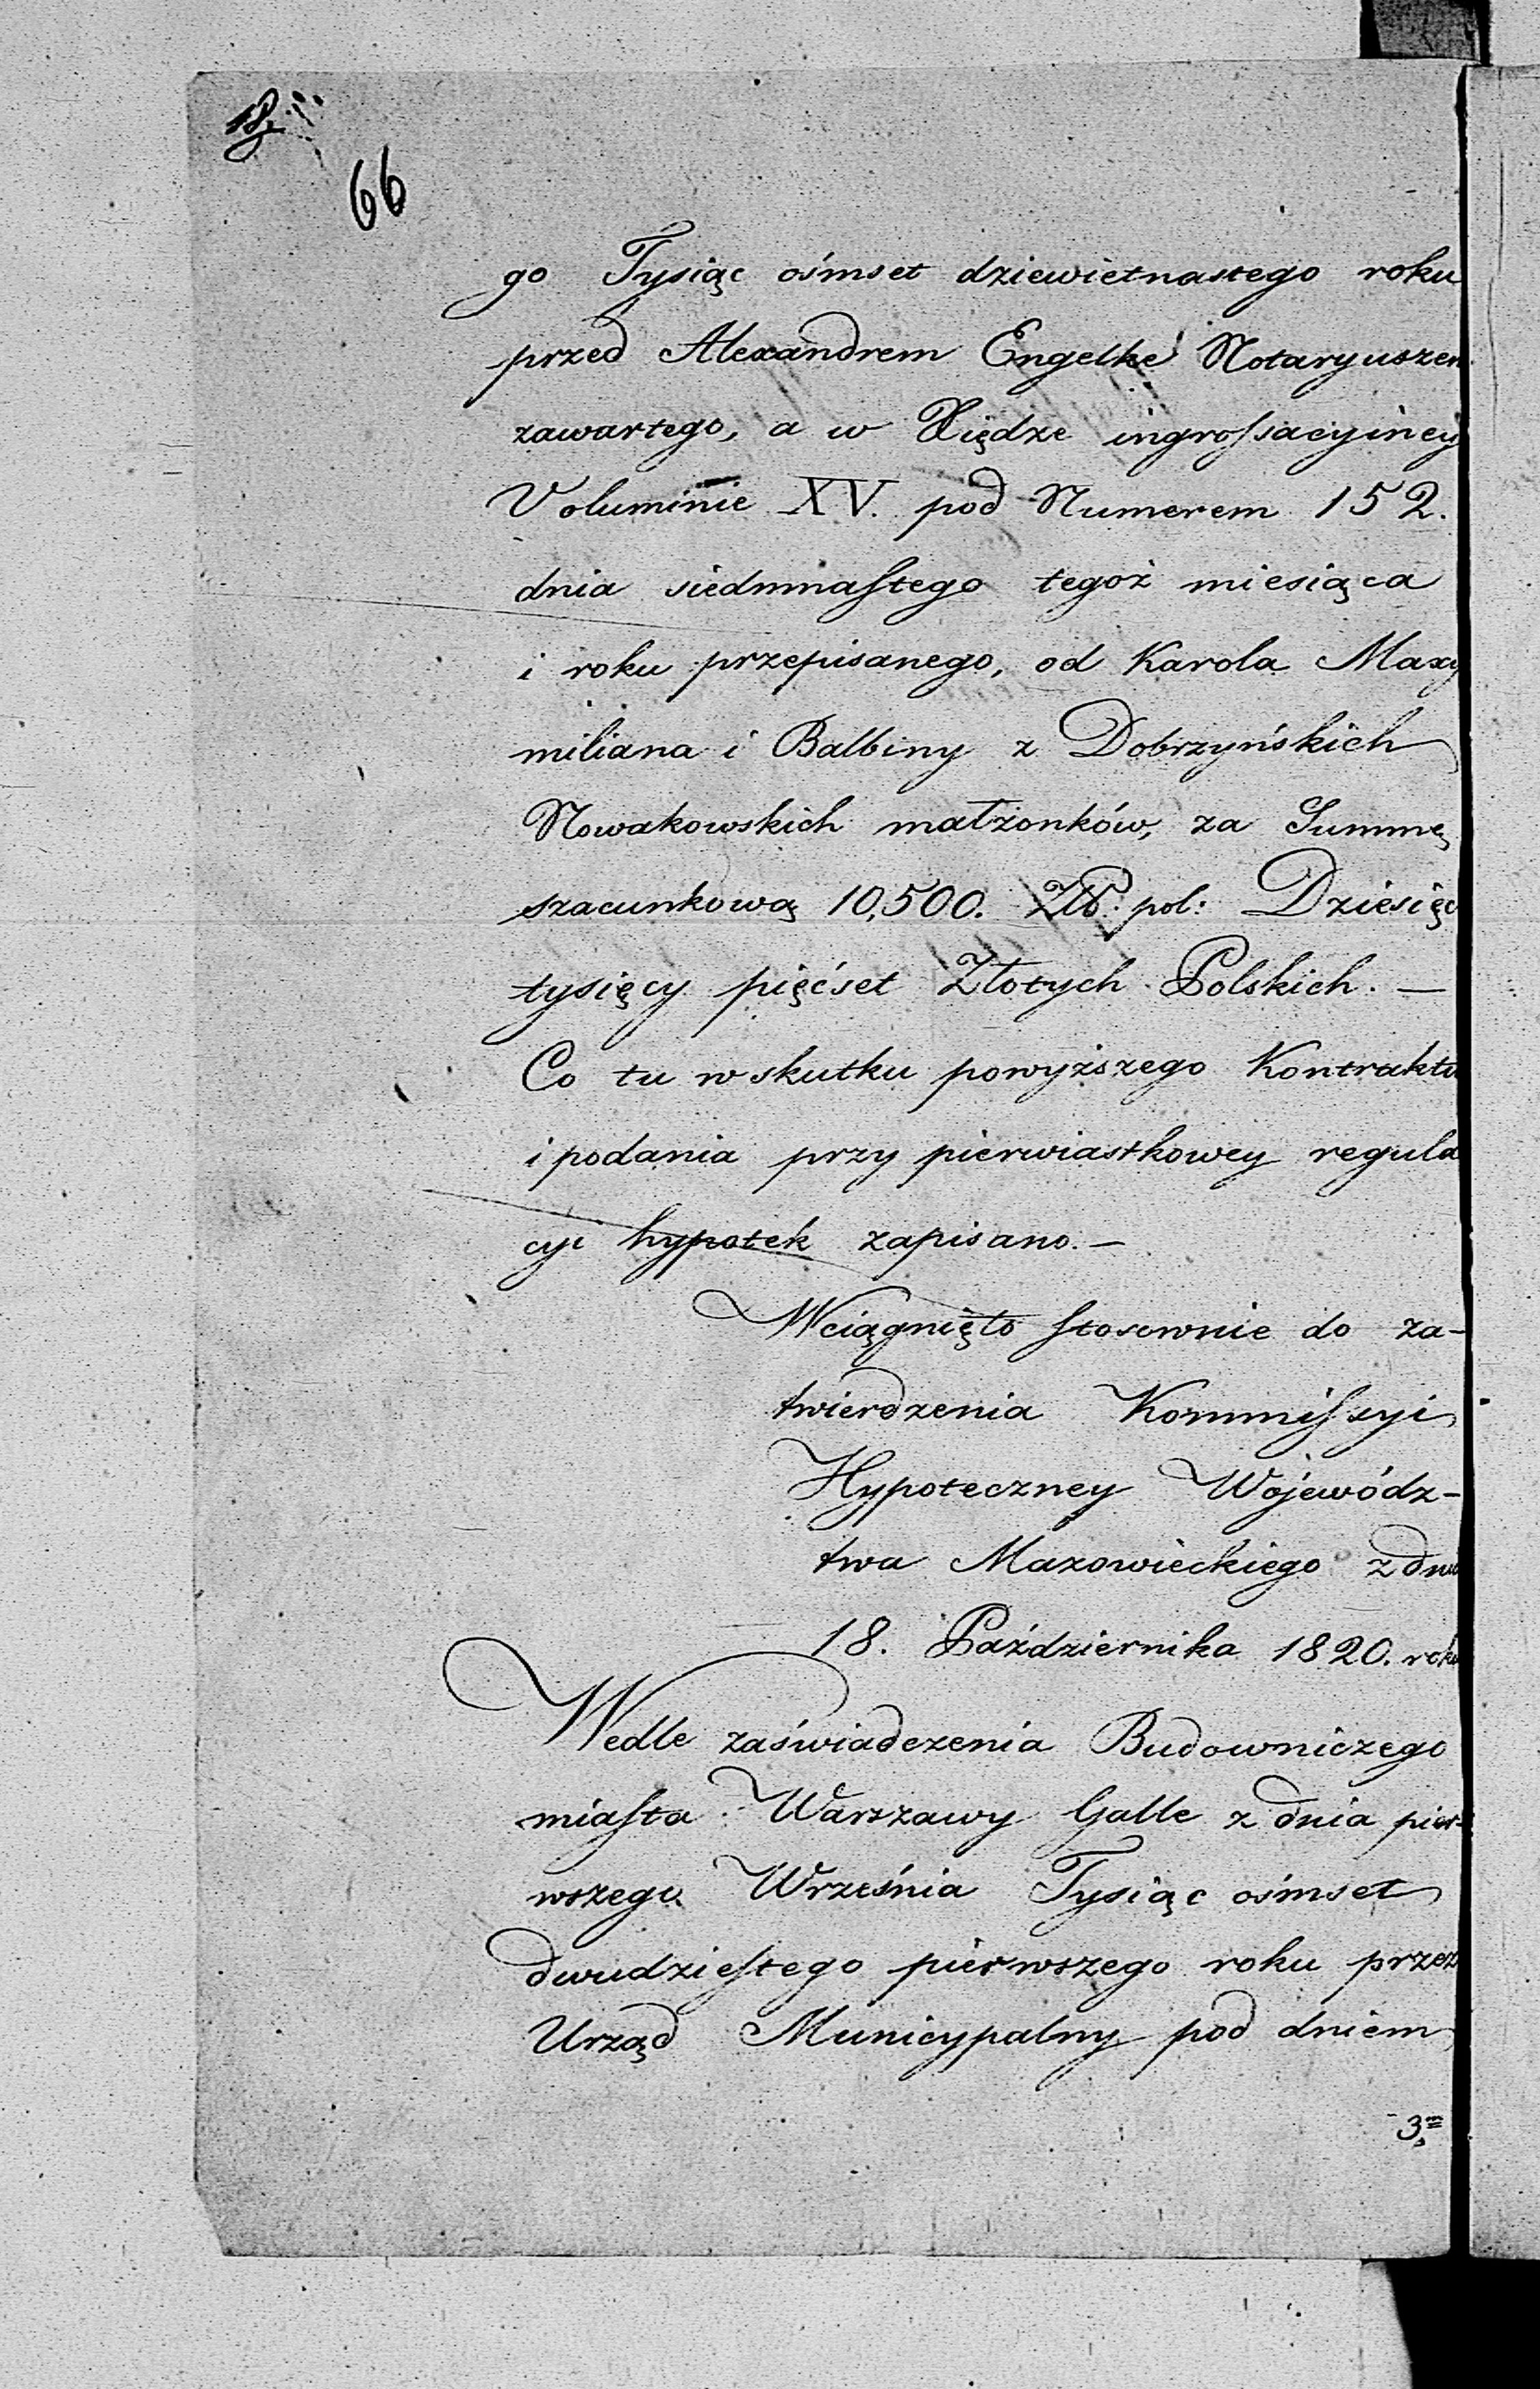 18.
66
go Tysiąc ośmset dziewietnastego roku
przed Alexandrem Engelke Notaryuszem
zawartego, a w Xiędze ingrossacyiney
Voluminie XV. pod Numerem 152.
dnia siedmnastego tegoż miesiąca
i roku przepisanego, od Karola Maxy
miliana i Balbiny z Dobrzyńskich
Nowakowskich małżonków, za Summę
szacunkową 10,500. Złł. pol: Dziesięć
tysięcy pięćset Złotych Polskich. —
Co tu w skutku powyższego Kontraktu
i podania przy pierwiastkowey regula
cyi hypotek zapisano. —
Wciągnięto stosownie do za-
twierdzenia Kommissyi
Hypoteczney Wojewódz-
twa Mazowieckiego z dnia
18. Października 1820. roku
Wedle zaświadczenia Budowniczego
miasta Warszawy Galle z dnia pier-
wszego Września Tysiąc ośmset
dwudziestego pierwszego roku przez
Urząd Municypalny pod dniem
3